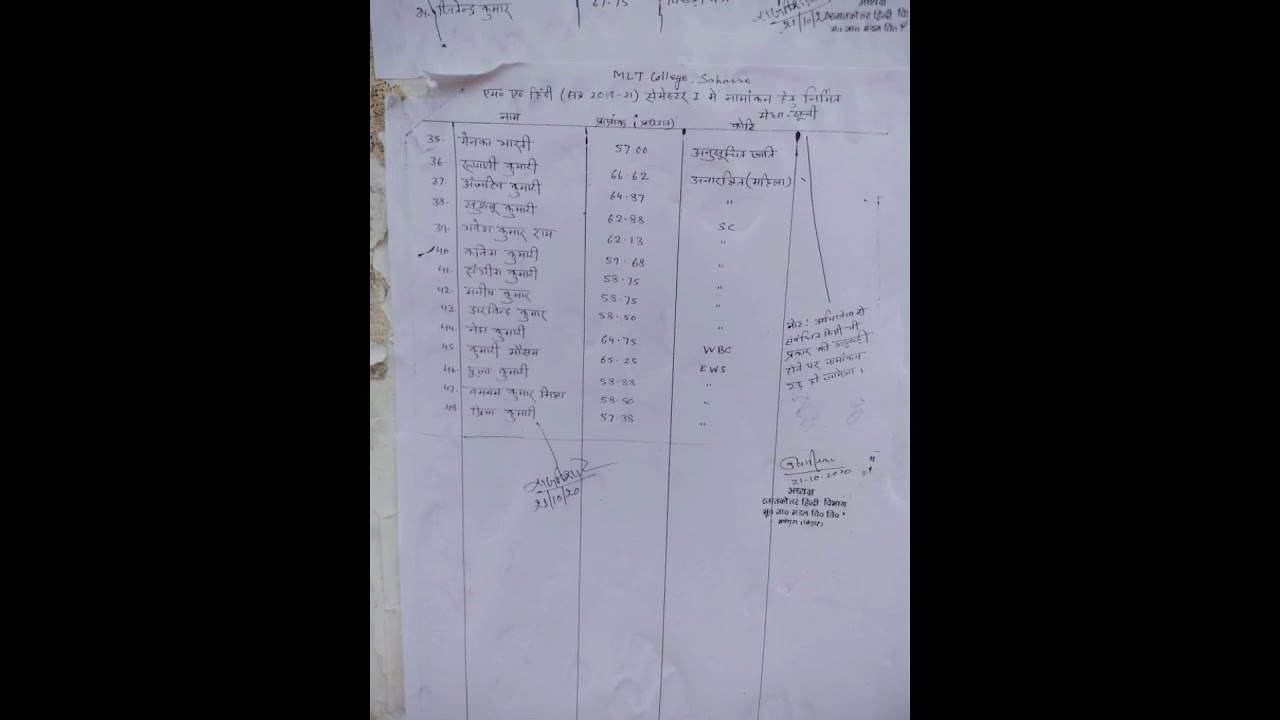 34. जितेन्द्र कुमार 61.75
21/10/20
अध्यक्ष
स्नातकोत्तर हिन्दी वि
भू० ना० मंडल वि०
MLT College, Saharsa
एम० ए० हिंदी (सत्र 2019-21) सेमेस्टर I मे नामांकन हेतु निर्मित
मेधा-सूची
नाम प्राप्तांक (प्रतिशत) कोटि
35. मेनका भारती 57.00 अनुसूचित जाति
36. रूपाणी कुमारी 66.62 अनारक्षित (महिला)
37. कुमारी 64.87 "
38. खुशबू कुमारी 62.88 SC
39. गणेश कुमार राम 62.13 "
40. कविता कुमारी 59.68 "
41. संगीता कुमारी 58.75 "
42. मनीष कुमार 58.75 "
43. अरविन्द कुमार 58.50 "
44. नेहा कुमारी 64.75 WBC
45. कुमारी मौसम 65.25 EWS
46. पूजा कुमारी 58.88 "
47. कुमार मिश्रा 58.50 "
48. प्रिया कुमारी 57.38 "
नोट: अभिलेख से
संबंधित किसी भी
प्रकार की गड़बड़ी
होने पर नामांकन
रद्द हो जायेगा।
21/10/20
21-10-2020
अध्यक्ष
स्नातकोत्तर हिन्दी विभाग
भू० ना० मंडल वि० वि०
मधेपुरा (बिहार)